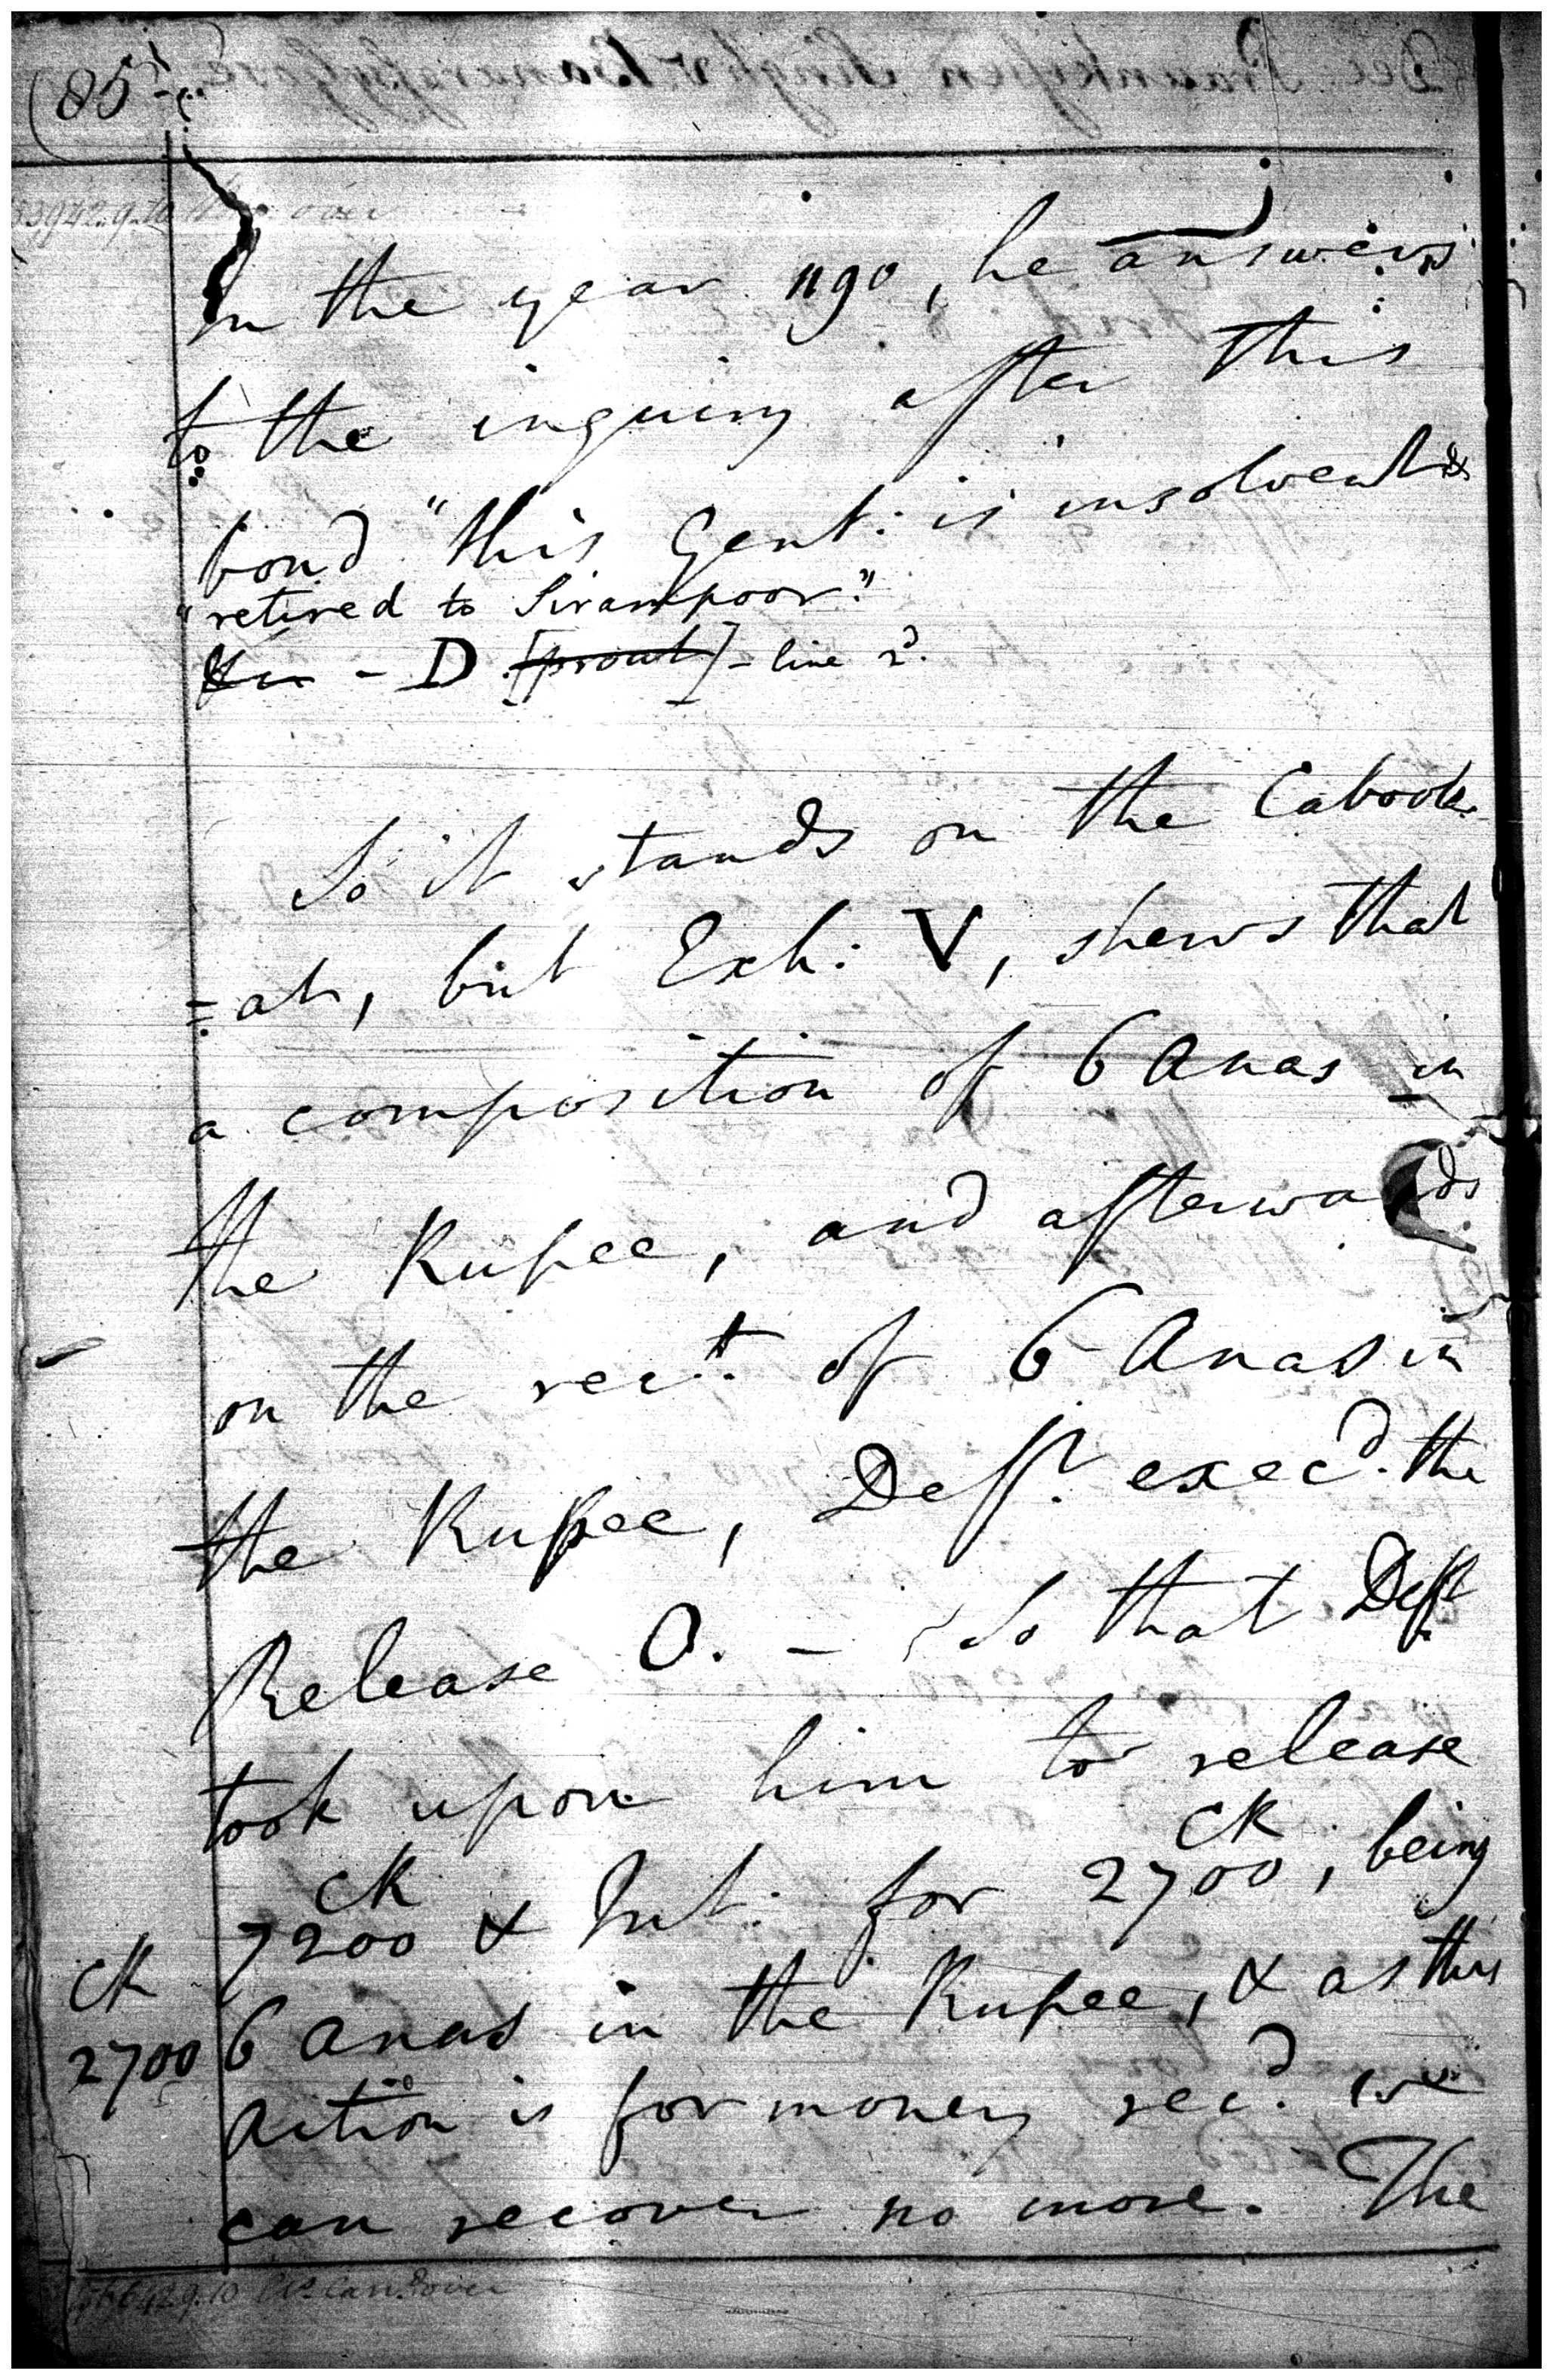 (85
33942..9..10 over
In the year 1190, he answers
to the inquiry after this
bond "this Gent: is insolvent &
"retired to Sirampoor."
- D [prout] - line 2d.
So it stands on the Cabook
=at, but Exh: V, shews that
a composition of 6 Anas in
the Rupee, and afterwards
on the rect. of 6 Anas in
the Rupee, Deft. execd. the
Release O. - So that Deft
took upon him to release
CK
CK
7200 & Int. for 2700, being
CK
2700
6 anas in the Rupee, & as this
Action is for money recd. we
can recover no more. The
Carrd. over